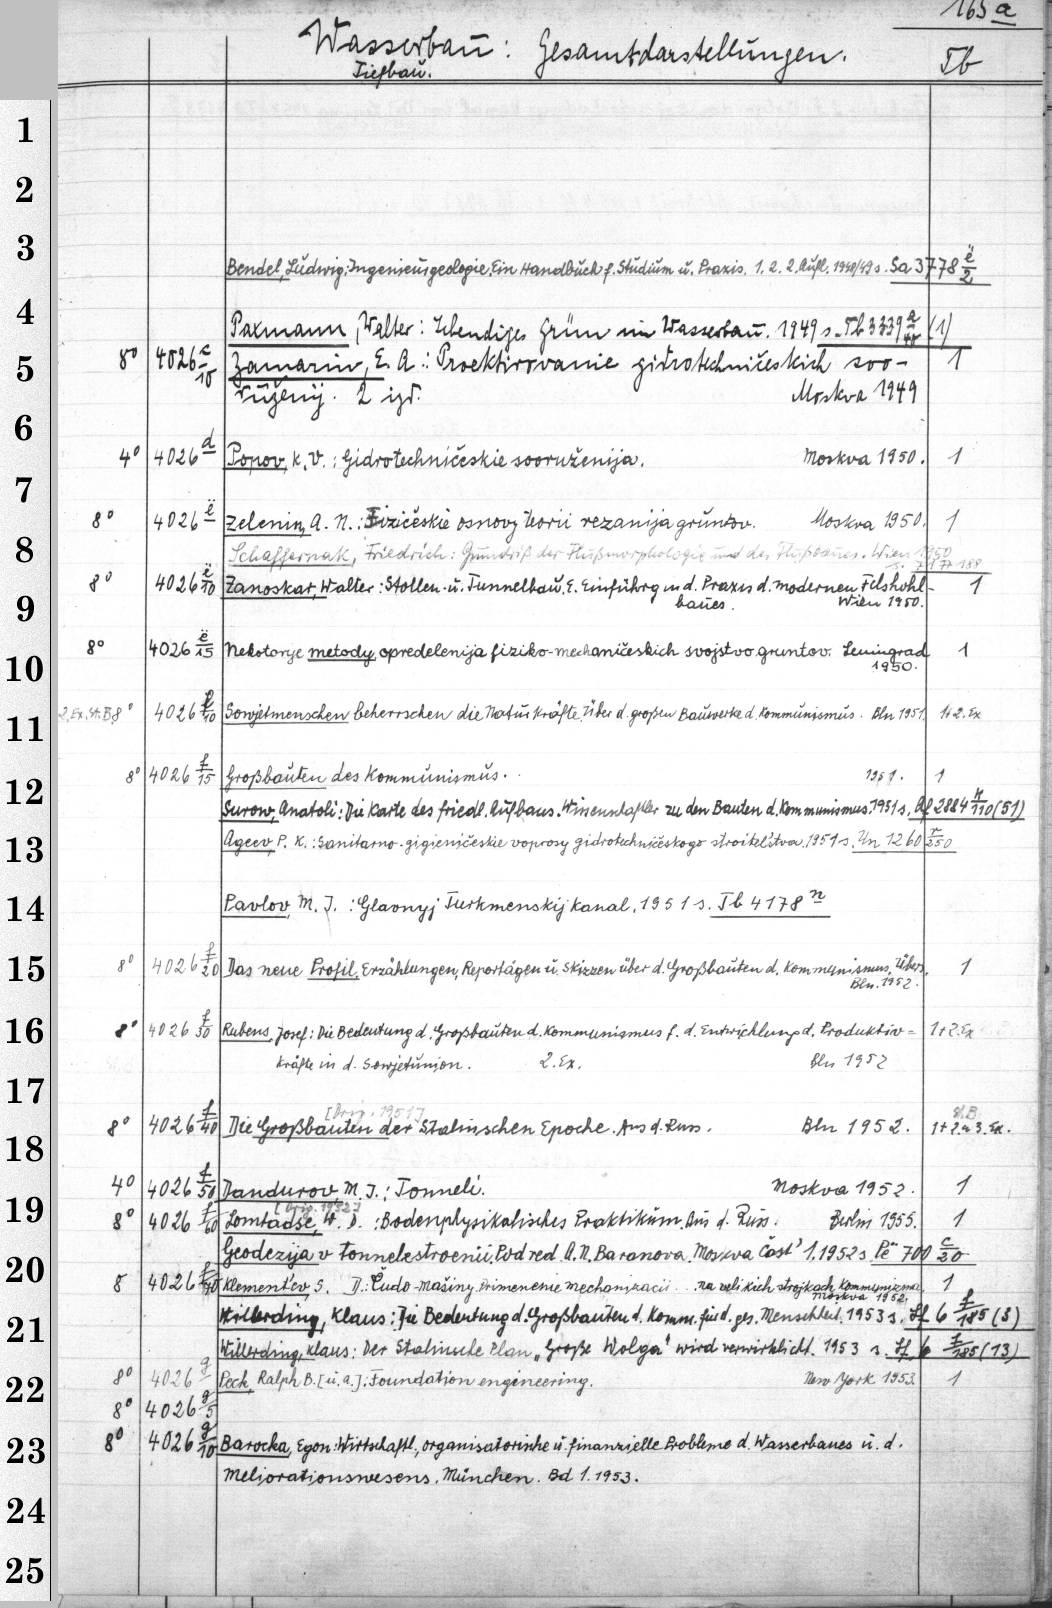 165 a
Wasserbau: Gesamtdarstellungen. Tb
Tiefbau.
1
2
3
Bendel, Ludwig: Ingenieurgeologie. Ein Handbuch f. Studium u. Praxis. 1. 2. 2. Aufl. 1949/49 s. Sa 3778 ë/2
4
Paxmann, Walter: Lebendiges Grün im Wasserbau. 1949 s. Tb 3339 a/40 (1)
5
8° 4026 c/10 Zamarin, E. A.: Proektirovanie gidrotechničeskich soo- 1
ružęnij. 2 izd. Moskva 1949
6
4° 4026 d Popov, K. V.: Gidrotechničeskie sooruženija. Moskva 1950. 1
7
8° 4026 ë Zelenin, A. N.: Fizičeskie osnovy teorii rezanija gruntov. Moskva 1950. 1
8
Schaffernak, Friedrich: Grundriß der Flußmorphologie und des Flußbaues. Wien 1950
s. 188
8° 4026 ë/10 Zanoskar, Walter: Stollen- u. Tunnelbau. E. Einführg in d. Praxis d. modernen Felshohl- 1
9
baues. Wien 1950.
8° 4026 ë/15 Nekotorye metody opredelenija fiziko-mechaničeskich svojstv gruntov. Leningrad 1
10
1950.
2. Ex. St. B. 8° 4026 f/10 Sowjetmenschen beherrschen die Naturkräfte. Über d. großen Bauwerke d. Kommunismus. Bln 1951. 1+2. Ex
11
8° 4026 f/15 Großbauten des Kommunismus. 1951. 1
12
Surow, Anatoli: Die Karte des friedl. Aufbaus. Wissenschaftler zu den Bauten d. Kommunismus. 1951 s. Af 2884 h/110 (51)
13
Ageev, P. K.: Sanitarno-gigieničeskie voprosy gidrotechničeskogo stroitel'stva. 1951 s. Un 1260 r/250
14
Pavlov, M. I.: Glavnyj Turkmenskij kanal. 1951 s. Tb 4178 n
15
8° 4026 f/20 Das neue Profil. Erzählungen, Reportagen u. Skizzen über d. Großbauten d. Kommunismus. Übers. 1
Bln. 1952.
16
8° 4026 f/30 Rubens, Josef: Die Bedeutung d. Großbauten d. Kommunismus f. d. Entwicklung d. Produktiv= 1+2. Ex
kräfte in d. Sowjetunion. 2. Ex. Bln 1952
17
[Orig. 1951] St. B.
8° 4026 f/40 Die Großbauten der Stalinschen Epoche. Aus d. Russ. Bln 1952. 1+2. u. 3. Ex.
18
4° 4026 f/50 Dandurov, M. I.: Tonneli. Moskva 1952. 1
19
[Orig. 1952]
8° 4026 f/60 Lomtadse, W. D.: Bodenphysikalisches Praktikum. Aus d. Russ. Berlin 1955. 1
Geodezija v tonnelestroenii. Pod red. A. N. Baranova. Moskva Čast' 1. 1952 s. Pe 700 c/20
20
8 4026 f/70 Klement'ev, S. D.: Čudo-mašiny. Primenenie mechanizacii ... na velikich strojkach kommunizma. 1
Moskva 1952.
21
Willerding, Klaus: Die Bedeutung d. Großbauten d. Komm. für d. ges. Menschheit. 1953 s. Ff 6 f/185 (5)
Willerding, Klaus: Der Stalinsche Plan „Große Wolga" wird verwirklicht. 1953 s. Ff 6 f/185 (13)
22
8° 4026 g Peck, Ralph B. [u. a.]: Foundation engineering. New York 1953. 1
8° 4026 g/5
23
8° 4026 g/10 Barocka, Egon: Wirtschaftl., organisatorische u. finanzielle Probleme d. Wasserbaues u. d.
Meliorationswesens. München. Bd 1. 1953.
24
25